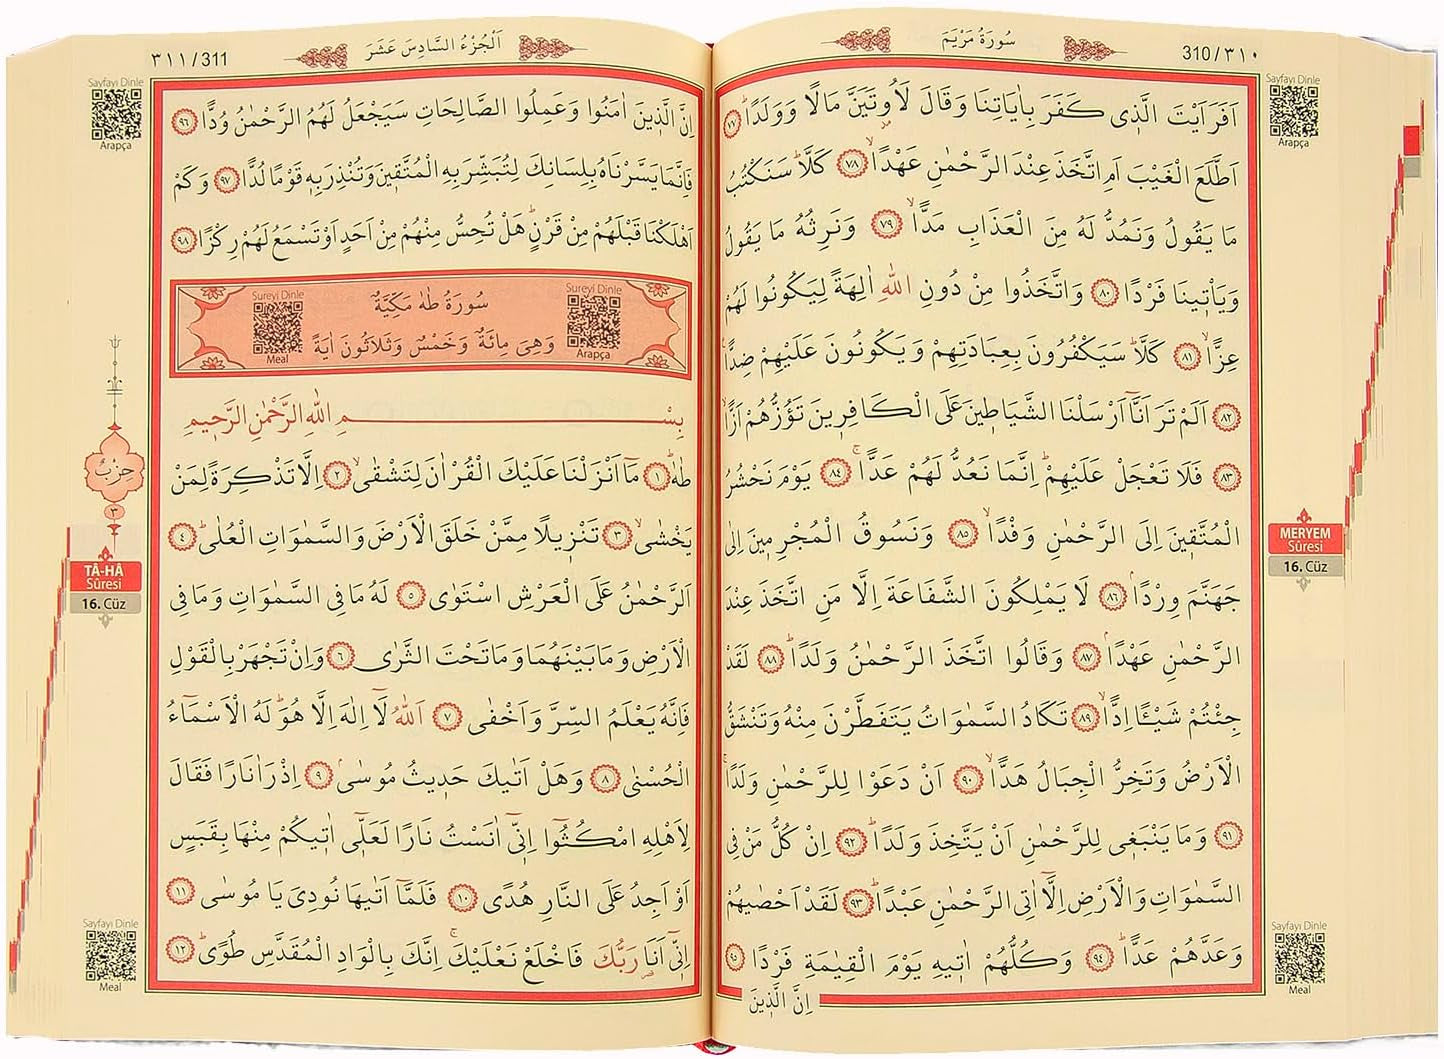 سُورَةُ مَرْيَمَ
310/٣١٠
Sayfayı Dinle
Arapça
اَفَرَاَيْتَ الَّذ۪ي كَفَرَ بِاٰيَاتِنَا وَقَالَ لَاُو۫تَيَنَّ مَالًا وَوَلَدًاۜ ﴿٧٧﴾
اَطَّلَعَ الْغَيْبَ اَمِ اتَّخَذَ عِنْدَ الرَّحْمٰنِ عَهْدًاۙ ﴿٧٨﴾ كَلَّاۜ سَنَكْتُبُ
مَا يَقُولُ وَنَمُدُّ لَهُ مِنَ الْعَذَابِ مَدًّاۙ ﴿٧٩﴾ وَنَرِثُهُ مَا يَقُولُ
وَيَأْت۪ينَا فَرْدًا ﴿٨٠﴾ وَاتَّخَذُوا مِنْ دُونِ اللّٰهِ اٰلِهَةً لِيَكُونُوا لَهُمْ
عِزًّاۙ ﴿٨١﴾ كَلَّاۜ سَيَكْفُرُونَ بِعِبَادَتِهِمْ وَيَكُونُونَ عَلَيْهِمْ ضِدًّا۟
﴿٨٢﴾ اَلَمْ تَرَ اَنَّٓا اَرْسَلْنَا الشَّيَاط۪ينَ عَلَى الْكَافِر۪ينَ تَؤُزُّهُمْ اَزًّاۙ
﴿٨٣﴾ فَلَا تَعْجَلْ عَلَيْهِمْۜ اِنَّمَا نَعُدُّ لَهُمْ عَدًّاۚ ﴿٨٤﴾ يَوْمَ نَحْشُرُ
الْمُتَّق۪ينَ اِلَى الرَّحْمٰنِ وَفْدًاۙ ﴿٨٥﴾ وَنَسُوقُ الْمُجْرِم۪ينَ اِلٰى
جَهَنَّمَ وِرْدًاۢ ﴿٨٦﴾ لَا يَمْلِكُونَ الشَّفَاعَةَ اِلَّا مَنِ اتَّخَذَ عِنْدَ
الرَّحْمٰنِ عَهْدًاۢ ﴿٨٧﴾ وَقَالُوا اتَّخَذَ الرَّحْمٰنُ وَلَدًاۜ ﴿٨٨﴾ لَقَدْ
جِئْتُمْ شَيْـًٔا اِدًّاۙ ﴿٨٩﴾ تَكَادُ السَّمٰوَاتُ يَتَفَطَّرْنَ مِنْهُ وَتَنْشَقُّ
الْاَرْضُ وَتَخِرُّ الْجِبَالُ هَدًّاۙ ﴿٩٠﴾ اَنْ دَعَوْا لِلرَّحْمٰنِ وَلَدًاۚ
﴿٩١﴾ وَمَا يَنْبَغ۪ي لِلرَّحْمٰنِ اَنْ يَتَّخِذَ وَلَدًاۜ ﴿٩٢﴾ اِنْ كُلُّ مَنْ فِي
السَّمٰوَاتِ وَالْاَرْضِ اِلَّٓا اٰتِي الرَّحْمٰنِ عَبْدًاۜ ﴿٩٣﴾ لَقَدْ اَحْصٰيهُمْ
وَعَدَّهُمْ عَدًّاۜ ﴿٩٤﴾ وَكُلُّهُمْ اٰت۪يهِ يَوْمَ الْقِيٰمَةِ فَرْدًا ﴿٩٥﴾
اِنَّ الَّذ۪ينَ
MERYEM
Sûresi
16. Cüz
Sayfayı Dinle
Meal
اَلْجُزْءُ السَّادِسَ عَشَرَ
٣١١/311
Sayfayı Dinle
Arapça
اِنَّ الَّذ۪ينَ اٰمَنُوا وَعَمِلُوا الصَّالِحَاتِ سَيَجْعَلُ لَهُمُ الرَّحْمٰنُ وُدًّا ﴿٩٦﴾
فَاِنَّمَا يَسَّرْنَاهُ بِلِسَانِكَ لِتُبَشِّرَ بِهِ الْمُتَّق۪ينَ وَتُنْذِرَ بِه۪ قَوْمًا لُدًّا ﴿٩٧﴾ وَكَمْ
اَهْلَكْنَا قَبْلَهُمْ مِنْ قَرْنٍۜ هَلْ تُحِسُّ مِنْهُمْ مِنْ اَحَدٍ اَوْ تَسْمَعُ لَهُمْ رِكْزًا ﴿٩٨﴾
Sureyi Dinle
Meal
سُورَةُ طٰهٰ مَكِّيَّةٌ
وَهِيَ مِائَةٌ وَخَمْسٌ وَثَلَاثُونَ اٰيَةً
Sureyi Dinle
Arapça
بِسْمِ اللّٰهِ الرَّحْمٰنِ الرَّح۪يمِ
طٰهٰۜ ﴿١﴾ مَٓا اَنْزَلْنَا عَلَيْكَ الْقُرْاٰنَ لِتَشْقٰىۙ ﴿٢﴾ اِلَّا تَذْكِرَةً لِمَنْ
يَخْشٰىۙ ﴿٣﴾ تَنْز۪يلًا مِمَّنْ خَلَقَ الْاَرْضَ وَالسَّمٰوَاتِ الْعُلٰىۜ ﴿٤﴾
اَلرَّحْمٰنُ عَلَى الْعَرْشِ اسْتَوٰى ﴿٥﴾ لَهُ مَا فِي السَّمٰوَاتِ وَمَا فِي
الْاَرْضِ وَمَا بَيْنَهُمَا وَمَا تَحْتَ الثَّرٰى ﴿٦﴾ وَاِنْ تَجْهَرْ بِالْقَوْلِ
فَاِنَّهُ يَعْلَمُ السِّرَّ وَاَخْفٰى ﴿٧﴾ اَللّٰهُ لَٓا اِلٰهَ اِلَّا هُوَۜ لَهُ الْاَسْمَٓاءُ
الْحُسْنٰى ﴿٨﴾ وَهَلْ اَتٰيكَ حَد۪يثُ مُوسٰىۢ ﴿٩﴾ اِذْ رَاٰ نَارًا فَقَالَ
لِاَهْلِهِ امْكُثُٓوا اِنّ۪ٓي اٰنَسْتُ نَارًا لَعَلّ۪ٓي اٰت۪يكُمْ مِنْهَا بِقَبَسٍ
اَوْ اَجِدُ عَلَى النَّارِ هُدًى ﴿١٠﴾ فَلَمَّٓا اَتٰيهَا نُودِيَ يَا مُوسٰى ﴿١١﴾
اِنّ۪ٓي اَنَا رَبُّكَ فَاخْلَعْ نَعْلَيْكَۚ اِنَّكَ بِالْوَادِ الْمُقَدَّسِ طُوًىۜ ﴿١٢﴾
حِزْبٌ
٣
TÂ-HÂ
Sûresi
16. Cüz
Sayfayı Dinle
Meal